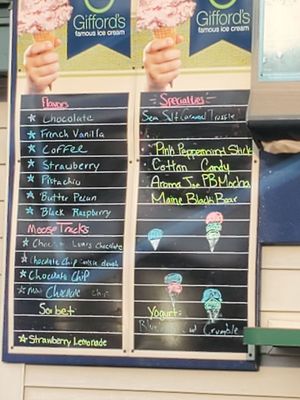 Gifford's
famous ice cream
Gifford's
famous ice cream
Flavors
Chocolate
French Vanilla
Coffee
Strawberry
Pistachio
Butter Pecan
Black Raspberry
Moose Tracks
Lovers Chocolate
Chocolate Chip cookie dough
Chocolate Chip
Mint Chocolate Chip
Sorbet
Strawberry Lemonade
Specialties
Sea Salt Caramel Truffle
Pink Peppermint Stick
Cotton Candy
Aroma Joe PB Mocha
Maine Black Bear
Yogurt:
Crumble